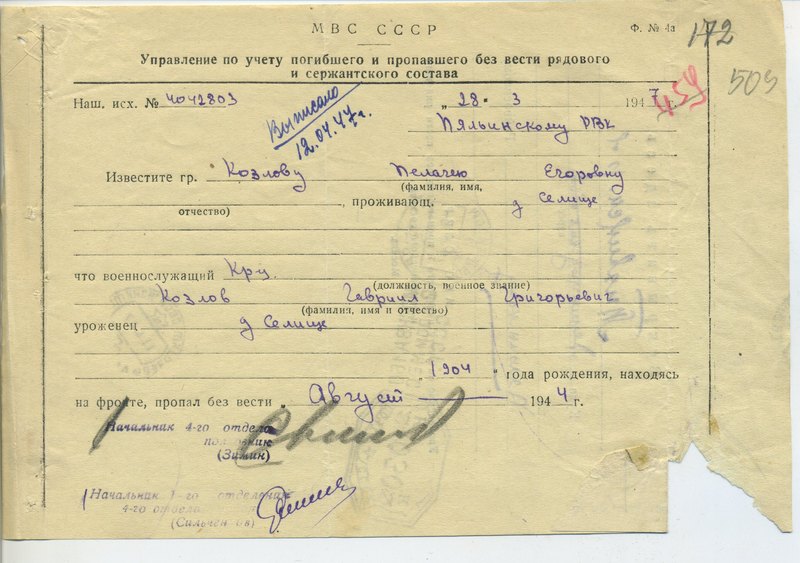 МВС СССР
Ф. № 4а
172
Управление по учету погибшего и пропавшего без вести рядового
и сержантского состава
459
509
Наш. исх. № 4042803 „ 28 · 3 1947 г.
Выписано
12.04.47 г.
Пяльинскому РВК
Известите гр. Козлову Пелагею Егоровну
(фамилия, имя,
, проживающ. д Селище
отчество)
что военнослужащий Кр-ц.
(должность, военное звание)
Козлов Гавриил Григорьевич
(фамилия, имя и отчество)
уроженец д Селище
„ 1904 " года рождения, находясь
на фронте, пропал без вести „ Август 1944 г.
Начальник 4-го отдела
(Зимин)
Начальник 1-го отделения
4-го отдела